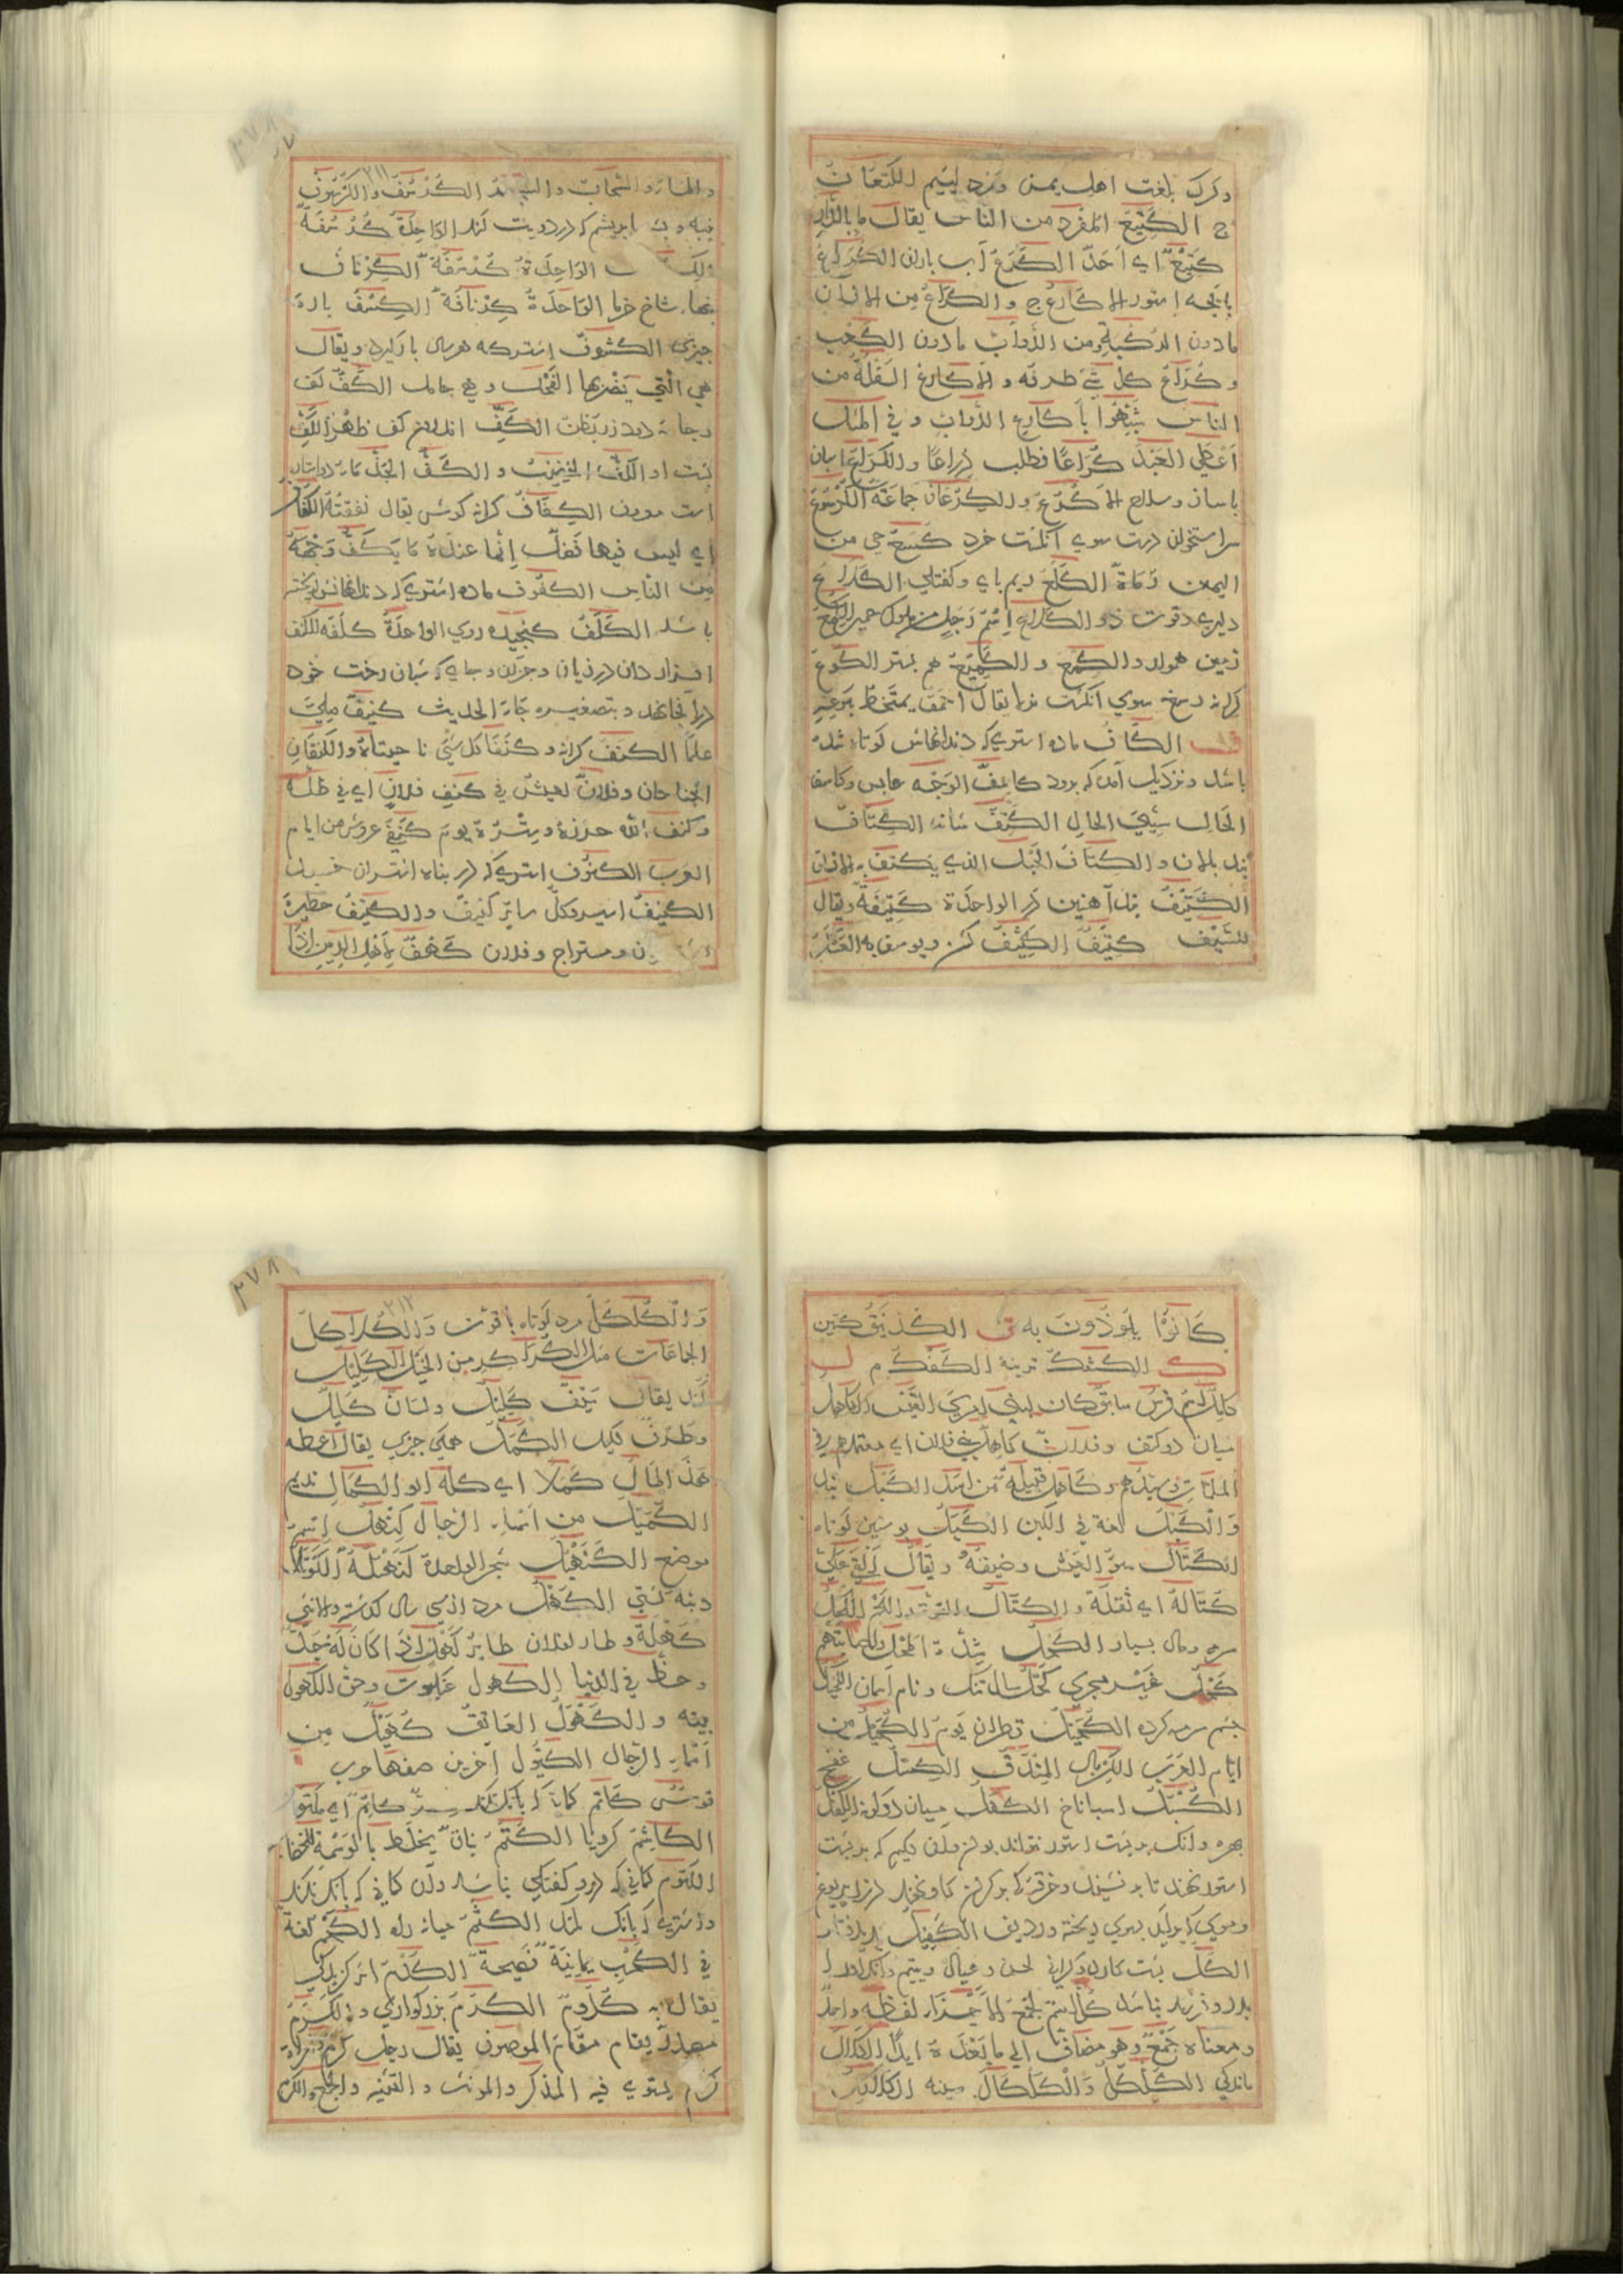 وكرك بلغت اهل يمن ومرد ليم الكتعان
ج الكتيع المفرد من الناس يقال ما بالدار
كتيع اي احد الكرع آب باران الكراع
پاچه استور الاكارع ج والكراع من الانسان
مادون الركبة ومن الدواب مادون الكعب
وكراع كل شئ طرفه والاكارع السفلة من
الناس شبهوا باكارع الدواب وفي المثل
اعطي العبد كراعا فطلب ذراعا والكراع اسپان
باساز وسلاح الاكرع والكرعان جماعته الكرسوع
سر استخوان دست سوي انگشت خرد كسع حي من
اليمن رماة الكلع ريم پاي وكفتگي الكلاع
دليري وقوت ذو الكلاع اسم رجل من ملوك حمير الكمع
زمين هموار والكمع والكميع هم بستر الكوع
كرانه دست سوي انگشت نر يقال احمق يمتخط بكوعه
ف الكاف ماده استري كه دندانهاش كوتاه شده
باشد ونزديك آمده كه برود كاسف الوجه عابس وكاسف
الحال سيئ الحال الكتف شانه الكتاف
بند بالان والكتاف الحبل الذي يكتف به الانسان
الكتيف بند آهنين در الواحدة كتيفة ويقال
للسيف كتيف الكثيف كشن ويوسف به العسكر
والماء والسحاب الكرسف والكرسوف
پنبه وپ ابريشم كه در دويت كنند الواحدة كرسفة
الواحدة كرسفة الكرناف
بنهاء شاخ خرما الواحدة كرنافة الكسف پاره
چيزي الكشوف اشتر كه هر سال بار گيرد ويقال
هي التي يضربها الفحل وهي حامل الكف كف
الكف اندرون كف ظهر الكف
پشت او الكف الخضيب والكف الجذماء دو ستاره
است معروف الكفاف كرانه گوش يقال نفقته الكفاف
اي ليس فيها فضل انما عنده ما يكف وجهه
من الناس الكفوف ماده اشتري كه دندانهاش ريخته
باشد الكلف كنجيده روي الواحدة كلفة الكنف
افزار دان درزيان وجزان وجاي كه شبان رخت خود
درانجا نهد وبتصغيره جاء الحديث كنيف ملئ
علما الكنف كرانه وكنفا كل شئ ناحيتاه والكنفان
الجناحان وفلان يعيش في كنف فلان اي في ظله
وكنف الله حرزه وستره يوم كنفي عروش من ايام
العرب الكنوف اشتري كه در پناه اشتران خسپد
الكنيف اسپر وكل ساتر كنيف والكنيف حظيرة
ن ومستراح وفلان كهف لاهل الريب اذا
كانوا يلوذون به ق الكذينق كتين
ك الكشك ترينه الكفكم ل
كامل اسم فرس سابق كان لبني امرئ القيس الكاهل
ميان دو كتف وفلان كاهل بني فلان اي معتمدهم في
الملمات وسندهم وكاهل قبيلة من اسد الكبل بند
والكبل لغة في الكبن الكبل پوستين كوتاه
الكتال سوء العيش وضيقه ويقال القي علي
كتاله اي ثقله والكتال القوة واللحم الكحل
سرمه ومال بسيار الكحل شدة المحل وللسماء اسم
كحل غير مجري كحل سال تنگ ونام آسمان الكحيل
چشم سرمه كرده الكحيل قطران يوم الكحيل من
ايام العرب الكربال المندف الكسل غفج
الكسبل اسباناخ الكفل ميان دو ران الكفل
بهره وآنكه بر پشت استور نتواند بودن وان گليم كه بر پشت
استور نهند تا بر نشينند وخرقه كه بر گردن گاو نهند در زير يوغ
وموي كه بر آيد بموي ريخته ورديف الكفيل پذيرفتار
الكل پشت كارد وگراني لحن وعيال ويتيم وآنكه او را
پدر وفرزند نباشد كل اسم لجمع الاجزاء لفظه واحد
ومعناه جمع وهو مضاف الي ما بعده ابدا الكلال
ماندگي الكلكل والكلكال سينه الكلاكل
والكلكل مرد كوتاه باقوت والكلاكل
الجماعات مثل الكراكر من الخيل الكليل
كند يقال سيف كليل ولسان كليل
وطرف كليل الكمل همگي چيزي يقال اعطه
هذا المال كملا اي كله ابو الكمال نديم
الكميل من اسماء الرجال كنهل اسم
موضع الكنهبل شجر الواحدة كنهبلة الكوثل
دنبه كشتي الكهل مرد از سي سال گذشته والانثي
كهلة وطار لفلان طاير كهل اذا كان له جد
وحظ في الدنيا الكهول عنكبوت وحق الكهول
بيته والكهول العاتق كهيل من
اسماء الرجال الكيول آخرين صفهاء حرب
قوس كاتم كمان كه بانگ نكند سر كاتم اي مكتوم
الكاشم كرويا الكتم نبات يخلط بالوسمة للخضاب
الكتوم كماني كه درو كفتگي نباشد وان كماني كه بانگ نكند
واشتري كه بانگ نكند الكثم ميانه راه الكحم لغة
في الكحب يمانية فصيحة الكدم اثر گزيدگي
يقال به كدوم الكرم بزرگواري والكرم
مصدر يقام مقام الموصوف يقال رجل كرم وامراة
كرم يستوي فيه المذكر والمونث والتثنيه والجمع الكرم
٣٧٨
٢١١
٣٧٨
٢١٢